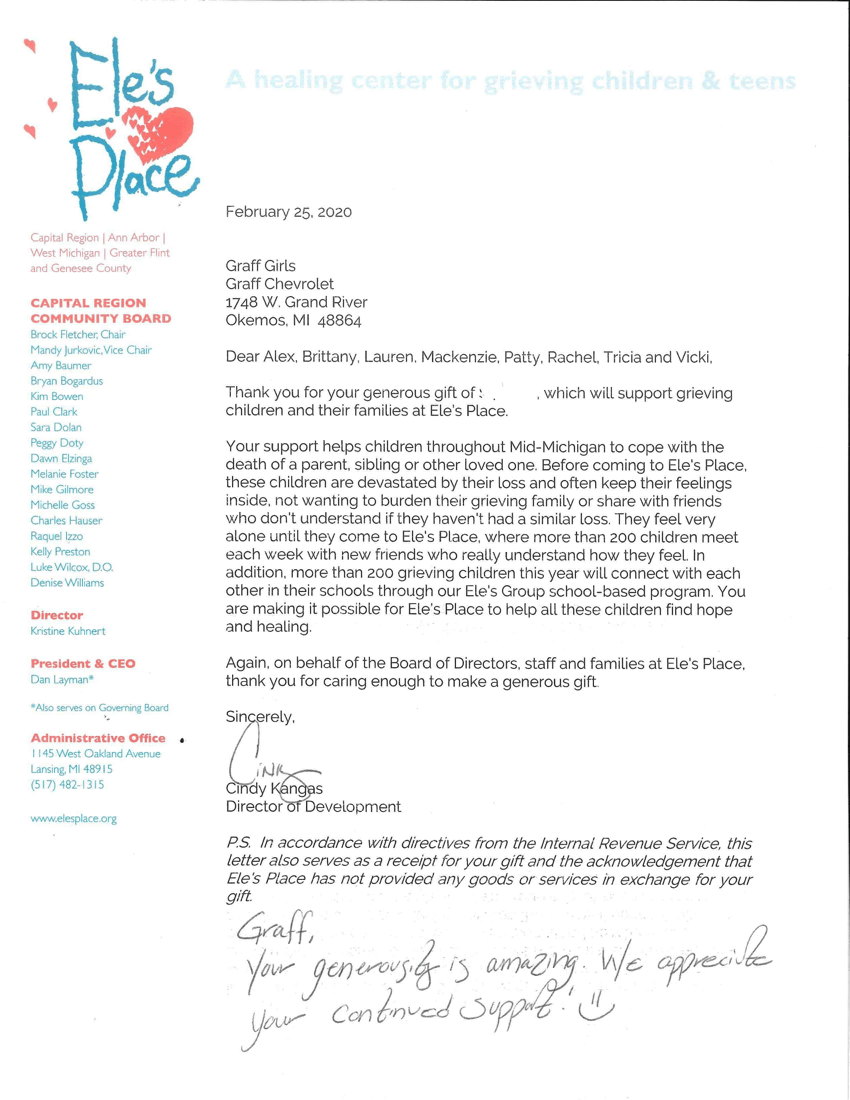 Ele's
Place
A healing center for grieving children & teens
Capital Region | Ann Arbor |
West Michigan | Greater Flint
and Genesee County
CAPITAL REGION
COMMUNITY BOARD
Brock Fletcher, Chair
Mandy Jurkovic, Vice Chair
Amy Baumer
Bryan Bogardus
Kim Bowen
Paul Clark
Sara Dolan
Peggy Doty
Dawn Elzinga
Melanie Foster
Mike Gilmore
Michelle Goss
Charles Hauser
Raquel Izzo
Kelly Preston
Luke Wilcox, D.O.
Denise Williams
Director
Kristine Kuhnert
President & CEO
Dan Layman*
*Also serves on Governing Board
Administrative Office
1145 West Oakland Avenue
Lansing, MI 48915
(517) 482-1315
www.elesplace.org
February 25, 2020
Graff Girls
Graff Chevrolet
1748 W. Grand River
Okemos, MI 48864
Dear Alex, Brittany, Lauren, Mackenzie, Patty, Rachel, Tricia and Vicki,
Thank you for your generous gift of , which will support grieving
children and their families at Ele's Place.
Your support helps children throughout Mid-Michigan to cope with the
death of a parent, sibling or other loved one. Before coming to Ele's Place,
these children are devastated by their loss and often keep their feelings
inside, not wanting to burden their grieving family or share with friends
who don't understand if they haven't had a similar loss. They feel very
alone until they come to Ele's Place, where more than 200 children meet
each week with new friends who really understand how they feel. In
addition, more than 200 grieving children this year will connect with each
other in their schools through our Ele's Group school-based program. You
are making it possible for Ele's Place to help all these children find hope
and healing.
Again, on behalf of the Board of Directors, staff and families at Ele's Place,
thank you for caring enough to make a generous gift.
Sincerely,
Cindy Kangas
Director of Development
P.S. In accordance with directives from the Internal Revenue Service, this
letter also serves as a receipt for your gift and the acknowledgement that
Ele's Place has not provided any goods or services in exchange for your
gift.
Graff,
Your generousity is amazing. We appreciate
your continued support!